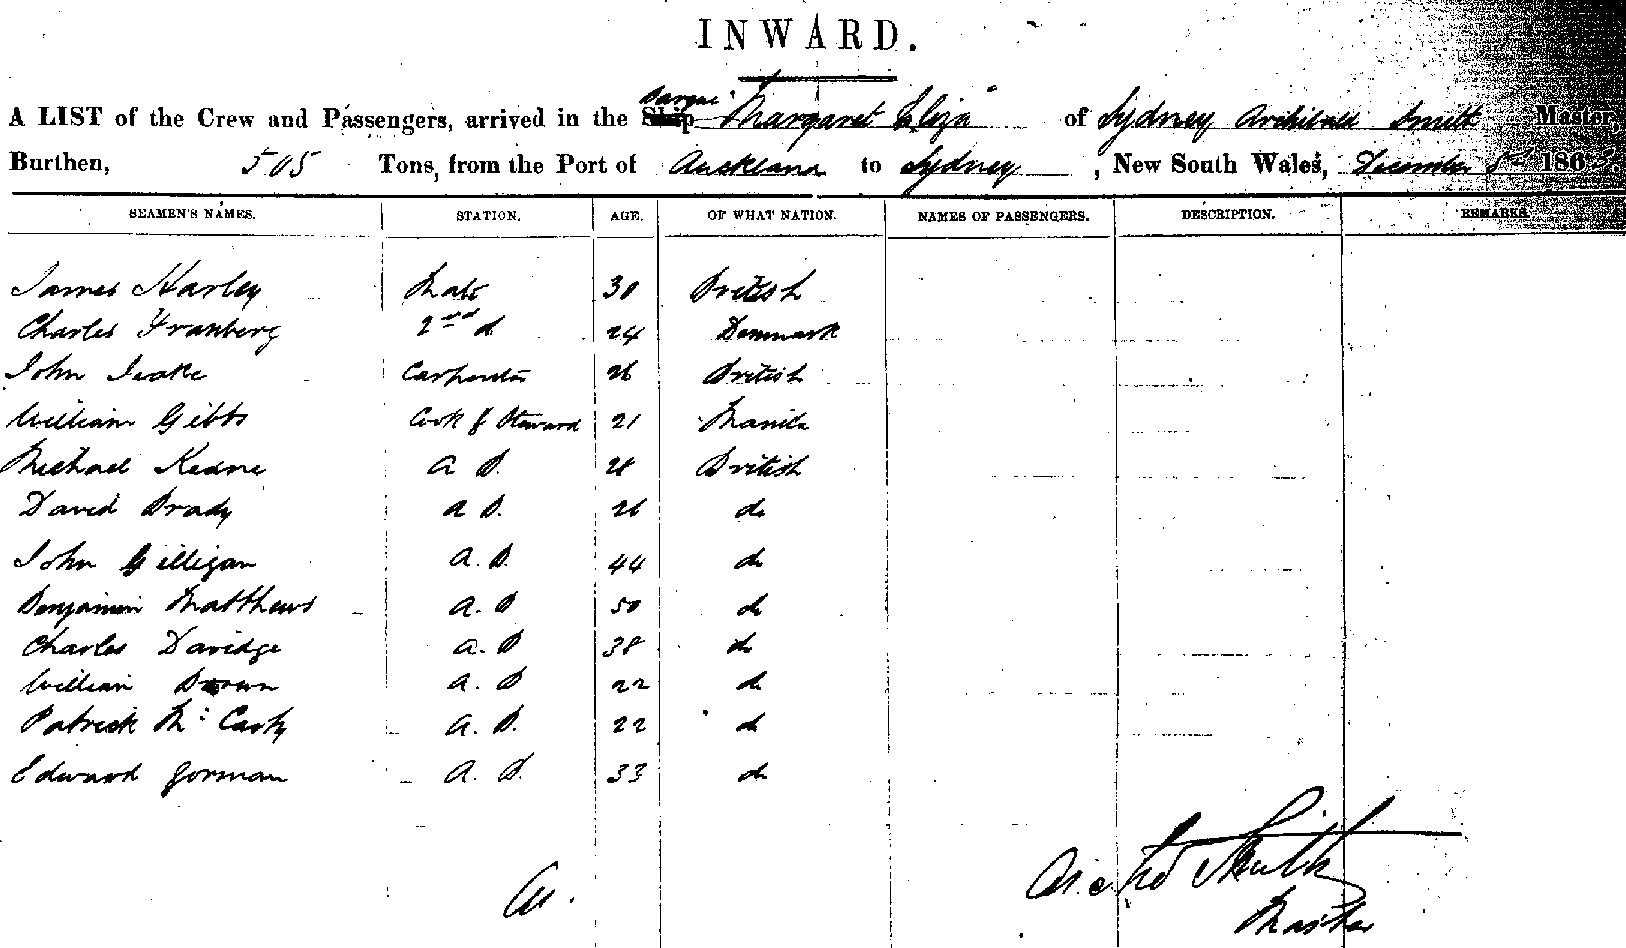 INWARD.
A LIST of the Crew and Passengers, arrived in the Ship Barque "Margaret Eliza" of Sydney Archibald Smith Master,
Burthen, 505 Tons, from the Port of Auckland to Sydney, New South Wales, December 8th 186
SEAMEN'S NAMES. STATION. AGE. OF WHAT NATION. NAMES OF PASSENGERS. DESCRIPTION. REMARKS.
James Harley Mate 30 British
Charles Franberg 2nd d 24 Denmark
John Leake Carpenter 26 British
William Gibbs Cook & Steward 21 Manila
Michael Keane A B. 28 British
David Brady A B. 26 do
John Gilligan A. B. 44 do
Benjamin Matthews A. B 50 do
Charles Davidge A. B 38 do
William Brown A. B 22 do
Patrick Mc Carty A. B. 22 do
Edward Gorman A. B. 33 do
Archd Smith
Master